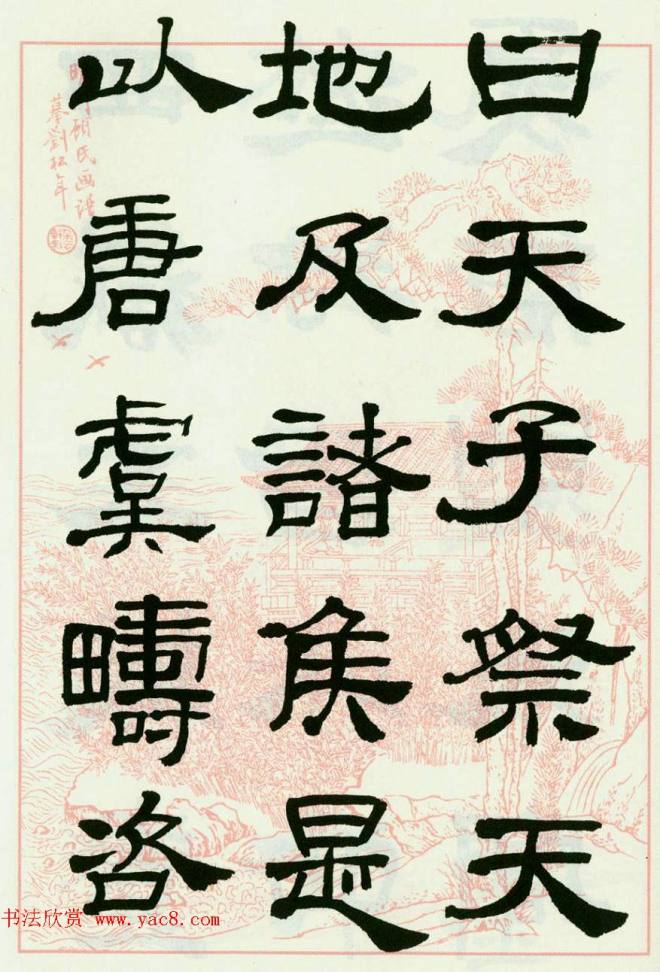 曰天子祭天
地及諸侯是
以唐虞疇咨
顾氏画谱
摹劉松年
书法欣赏 www.yac8.com